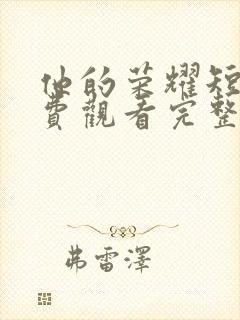 他的荣耀短
費觀看完整
弗雷澤